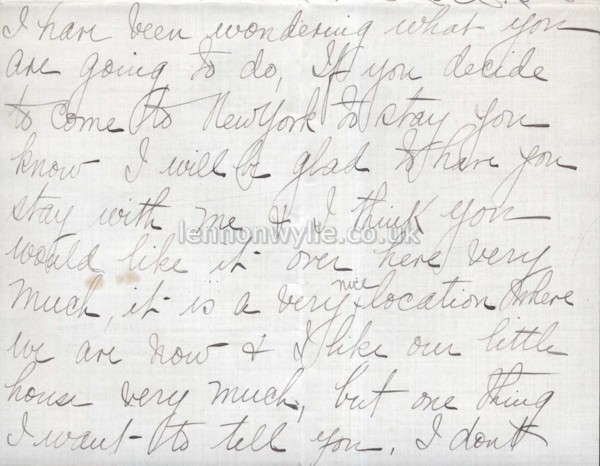 I have been wondering what you
are going to do, If you decide
to come to New York to stay you
know I will be glad to have you
stay with me & I think you
lennonwylie.co.uk
would like it over here very
much, it is a very nice location where
we are now & I like our little
house very much, but one thing
I want to tell you, I don't